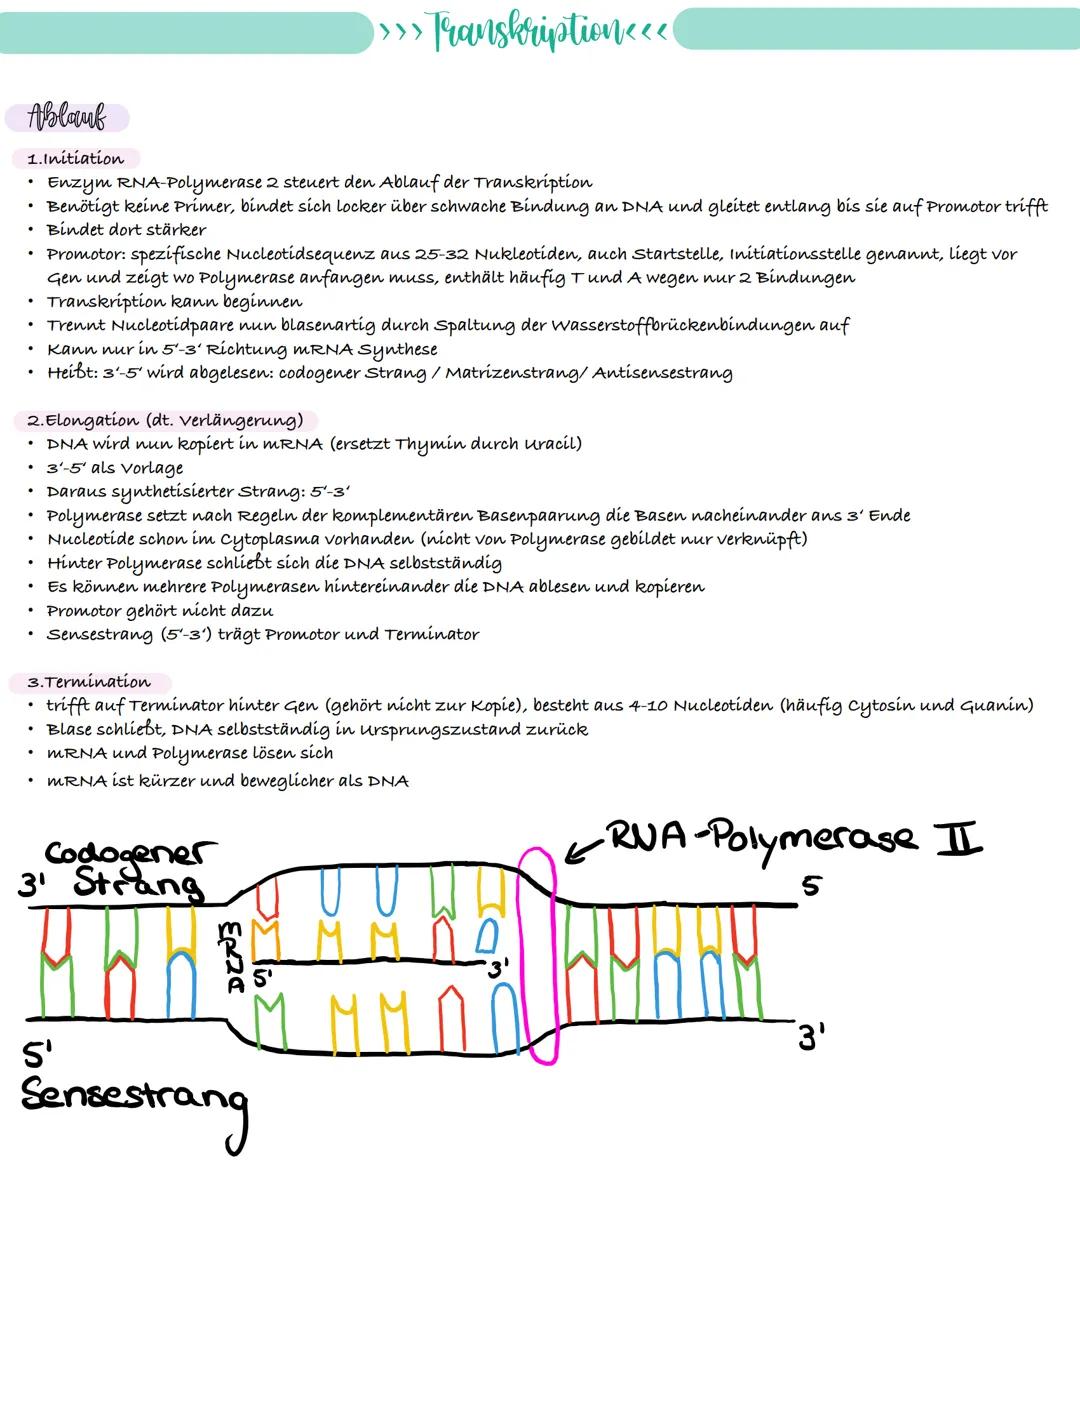 >>> Transkription <<<
Ablauf
1.Initiation
• Enzym RNA-Polymerase 2 steuert den Ablauf der Transkription
• Benötigt keine Primer, bindet sich locker über schwache Bindung an DNA und gleitet entlang bis sie auf Promotor trifft
• Bindet dort stärker
• Promotor: spezifische Nucleotidsequenz aus 25-32 Nukleotiden, auch Startstelle, Initiationsstelle genannt, liegt vor
Gen und zeigt wo Polymerase anfangen muss, enthält häufig T und A wegen nur 2 Bindungen
• Transkription kann beginnen
• Trennt Nucleotidpaare nun blasenartig durch Spaltung der Wasserstoffbrückenbindungen auf
• Kann nur in 5'-3' Richtung mRNA Synthese
• Heißt: 3'-5' wird abgelesen: codogener Strang / Matrizenstrang/ Antisensestrang
2.Elongation (dt. Verlängerung)
• DNA wird nun kopiert in mRNA (ersetzt Thymin durch Uracil)
• 3'-5' als Vorlage
• Daraus synthetisierter Strang: 5'-3'
• Polymerase setzt nach Regeln der komplementären Basenpaarung die Basen nacheinander ans 3' Ende
• Nucleotide schon im Cytoplasma vorhanden (nicht von Polymerase gebildet nur verknüpft)
• Hinter Polymerase schließt sich die DNA selbstständig
• Es können mehrere Polymerasen hintereinander die DNA ablesen und kopieren
• Promotor gehört nicht dazu
• Sensestrang (5'-3') trägt Promotor und Terminator
3.Termination
• trifft auf Terminator hinter Gen (gehört nicht zur Kopie), besteht aus 4-10 Nucleotiden (häufig Cytosin und Guanin)
• Blase schließt, DNA selbstständig in Ursprungszustand zurück
• mRNA und Polymerase lösen sich
• mRNA ist kürzer und beweglicher als DNA
RNA-Polymerase II
Codogener
3' Strang
5
mRNA
5'
3'
5'
3'
Sensestrang